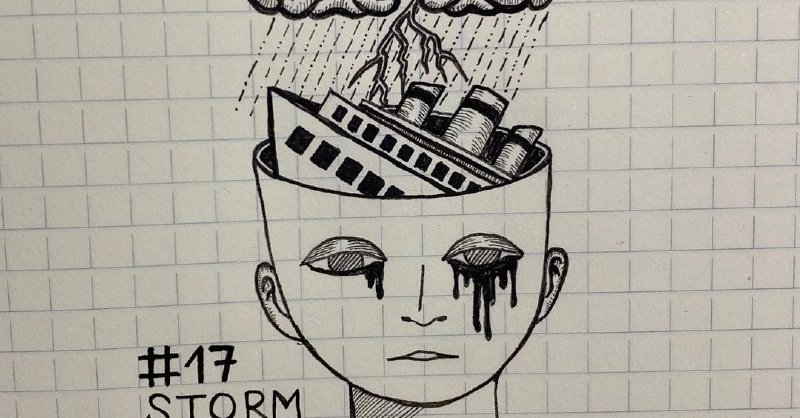 #17
STORM